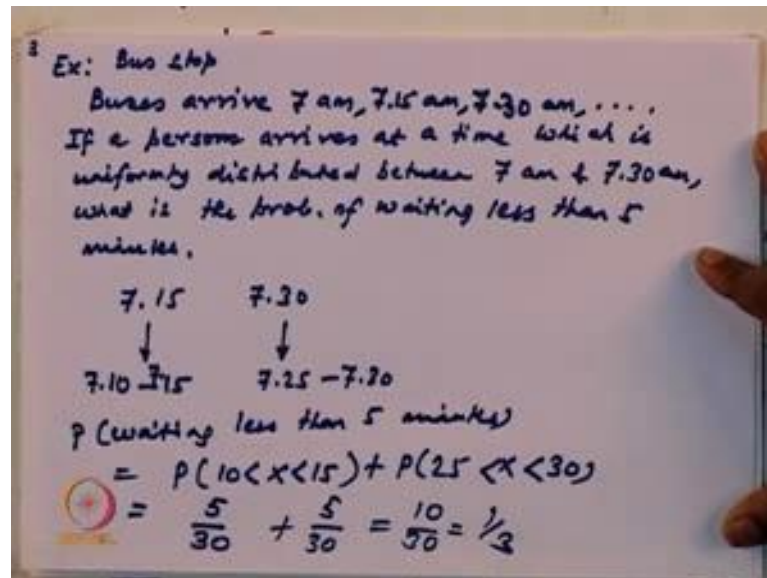 3
Ex: Bus stop
Buses arrive 7 am, 7.15 am, 7.30 am, ....
If a person arrives at a time which is
uniformly distributed between 7 am & 7.30 am,
what is the prob. of waiting less than 5
minutes.
7.15 7.30
↓ ↓
7.10-7.15 7.25-7.30
P (waiting less than 5 minutes)
= P(10<x<15)+P(25<x<30)
= 5/30 + 5/30 = 10/30 = 1/3